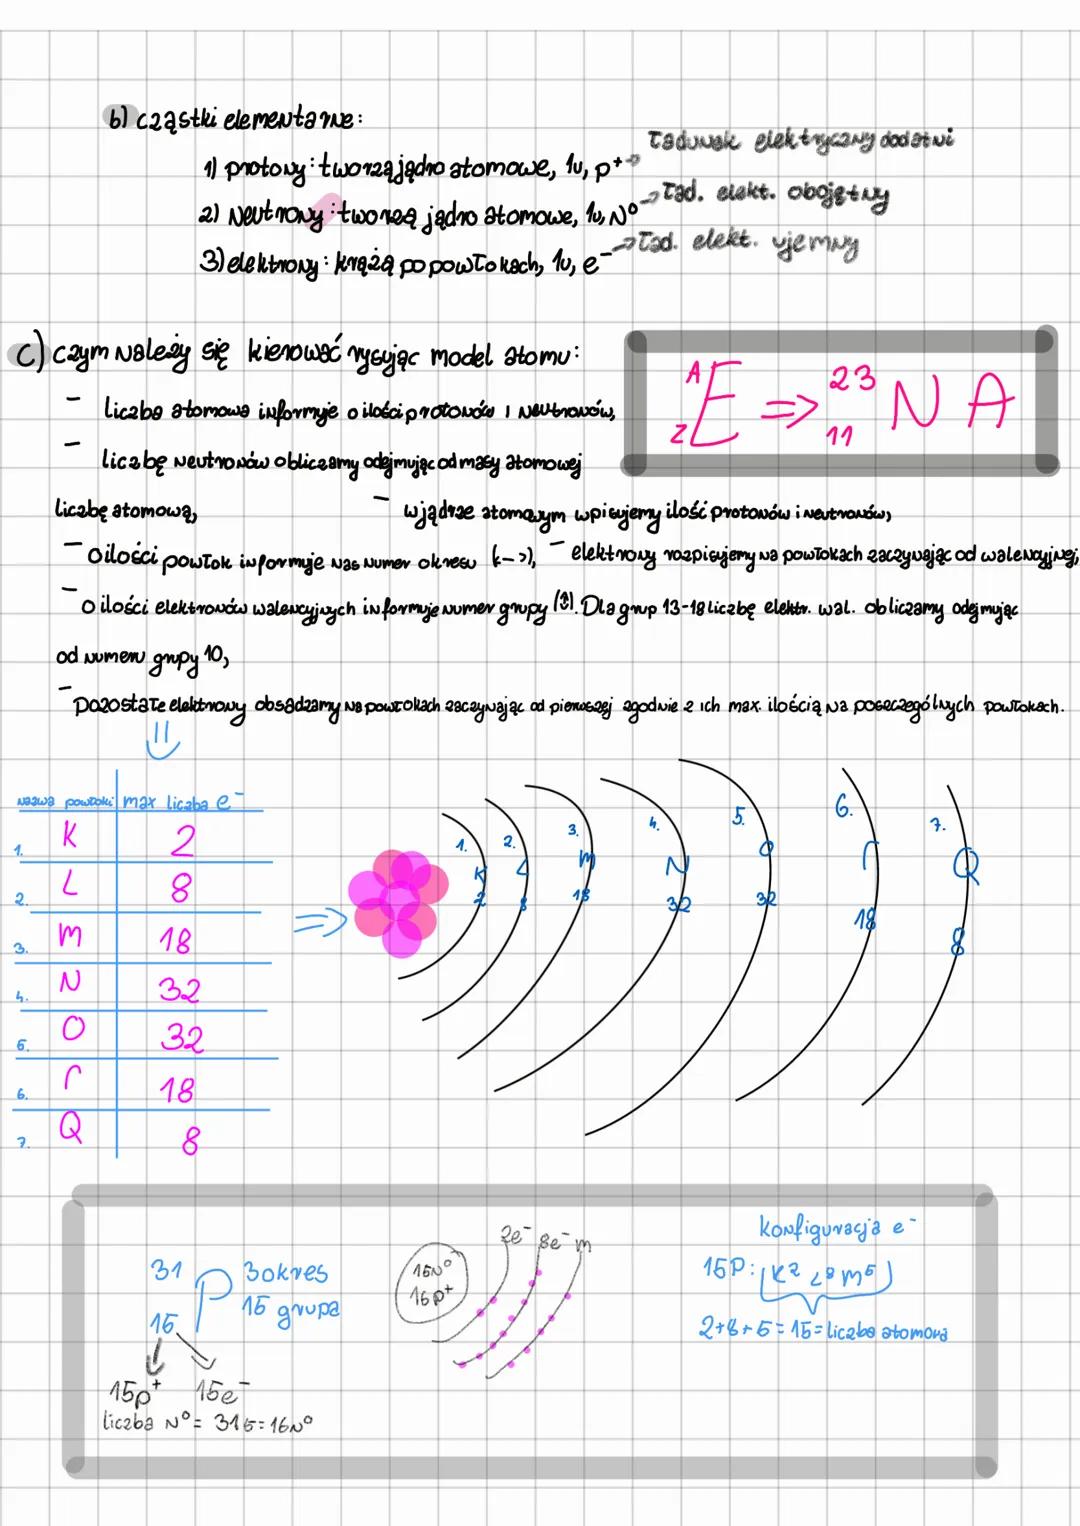 b) cząstki elementarne:
1) protony: tworzą jądro atomowe, 1u, p⁺ → ładunek elektryczny dodatni
2) Neutrony: tworzą jądro atomowe, 1u, N⁰ → ład. elekt. obojętny
3) elektrony: krążą po powłokach, 1u, e⁻ → ład. elekt. ujemny
c) czym należy się kierować rysując model atomu:
- liczba atomowa informuje o ilości protonów i neutronów,
- liczbę neutronów obliczamy odejmując od masy atomowej
liczbę atomową,
- w jądrze atomowym wpisujemy ilość protonów i neutronów,
- o ilości powłok informuje nas numer okresu (<->),
- elektrony rozpisujemy na powłokach zaczynając od walencyjnej,
- o ilości elektronów walencyjnych informuje numer grupy (↕). Dla grup 13-18 liczbę elektr. wal. obliczamy odejmując
od numeru grupy 10,
- pozostałe elektrony obsadzamy na powłokach zaczynając od pierwszej zgodnie z ich max. ilością na poszczególnych powłokach.
A
Z
E => 23
11
NA
nazwa powłoki max liczba e⁻
1. K 2
2. L 8
3. M 18
4. N 32
5. O 32
6. P 18
7. Q 8
1. K 2
2. L 8
3. M 18
4. N 32
5. O 32
6. P 18
7. Q 8
31
15
P
3 okres
15 grupa
15p⁺ 15e⁻
liczba N⁰ = 31 15 = 16N⁰
16N⁰
15p⁺
2e⁻ 8e⁻ M
konfiguracja e⁻
15P: (K² L⁸ M⁵)
2+8+5=15=liczba atomowa